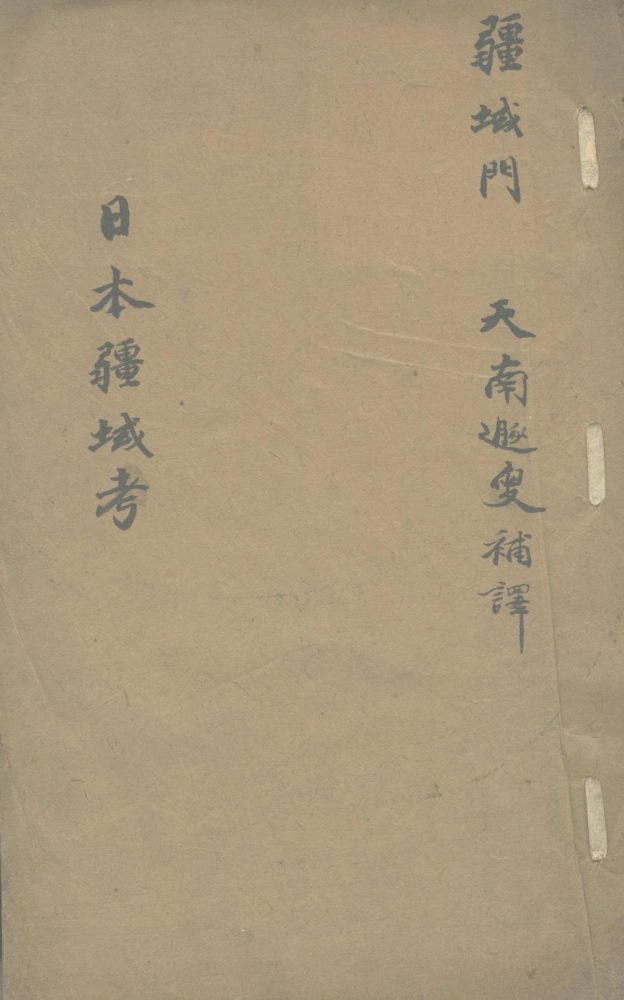 疆域門 天南遯叟補譯
日本疆域考